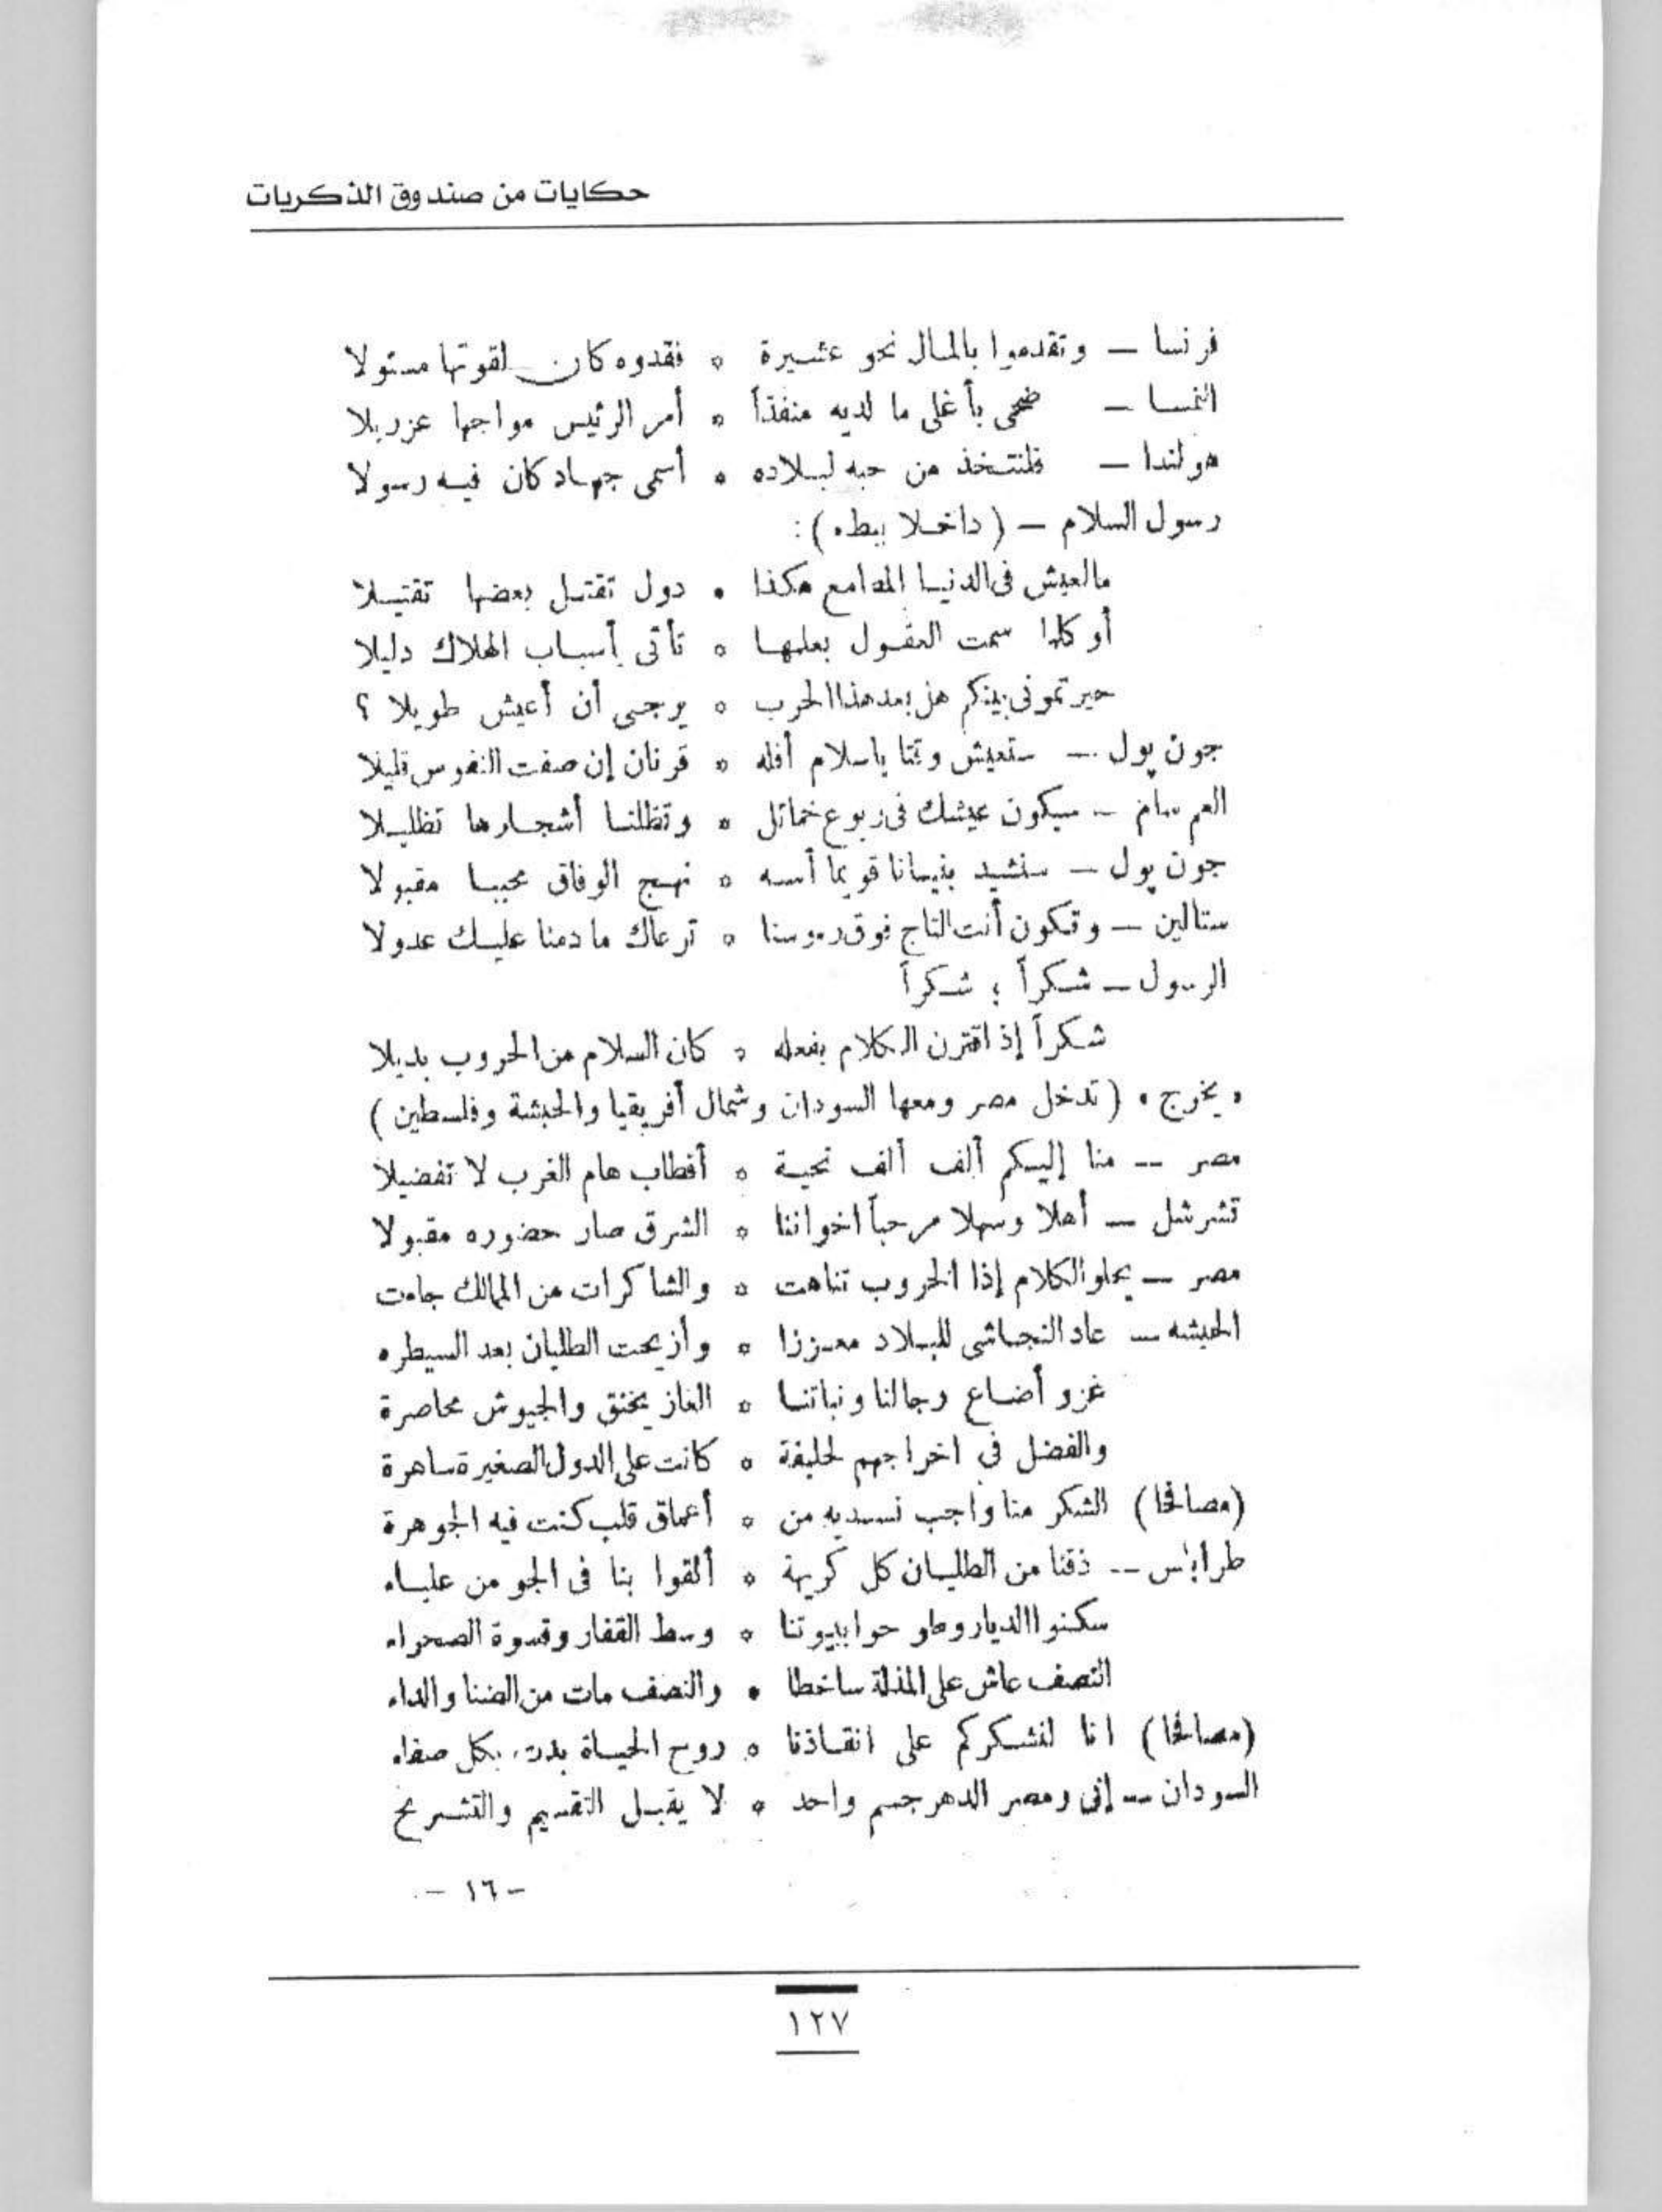 حكايات من صندوق الذكريات
فرنسا — وتقدموا بالمال نحو عشيرة * فقدوه كان لقوتها مسئولا
النمسا — ضحى بأغلى ما لديه منفذاً * أمر الرئيس مواجها عزريلا
هولندا — فلنتخذ من حبه لبلاده * أسمى جهاد كان فيه رسولا
رسول السلام — (داخلا ببطء):
مالعيش فى الدنيا المدامع هكذا * دول تقتل بعضها تقتيلا
أو كلما سمت العقول بعلمها * تأتى بأسباب الهلاك دليلا
حيرتمونى بينكم هل بعد هذا الحرب * يرجى أن أعيش طويلا ؟
جون بول — ستعيش وقتا ياسلام أقله * قرنان إن صفت النفوس قليلا
العم سام — سيكون عيشك فى ربوع خمائل * وتظللنا أشجارها تظليلا
جون بول — سنشيد بنيانا قويما أسه * نهج الوفاق محببا مقبولا
ستالين — وتكون أنت التاج فوق رءوسنا * نرعاك ما دمنا عليك عدولا
الرسول — شكراً ؛ شكراً
شكراً إذ اقترن الكلام بفعله * كان السلام من الحروب بديلا
« يخرج » (تدخل مصر ومعها السودان وشمال أفريقيا والحبشة وفلسطين)
مصر — منا إليكم ألف ألف تحية * أقطاب هام الغرب لا تفضيلا
تشرشل — أهلا وسهلا مرحباً اخواننا * الشرق صار حضوره مقبولا
مصر — يحلو الكلام إذا الحروب تناهت * والشاكرات من الممالك جاءت
الحبشه — عاد النجاشى للبلاد معززا * وأزيحت الطليان بعد السيطره
غزو أضاع رجالنا ونباتنا * الغاز يخنق والجيوش محاصرة
والفضل فى اخراجهم لحليفة * كانت على الدول الصغيرة ساهرة
(مصافحا) الشكر منا واجب نسديه من * أعماق قلب كنت فيه الجوهرة
طرابلس — ذقنا من الطليان كل كريهة * ألقوا بنا فى الجو من علياء
سكنوا الديار وطوحوا ببيوتنا * وسط القفار وقسوة الصحراء
النصف عاش على المذلة ساخطا * والنصف مات من الضنا والداء
(مصافحا) انا لنشكركم على انقاذنا * روح الحياة بدت بكل صفاء
السودان — إنى ومصر الدهر جسم واحد * لا يقبل التقسيم والتشريح
- ١٦ -
١٢٧